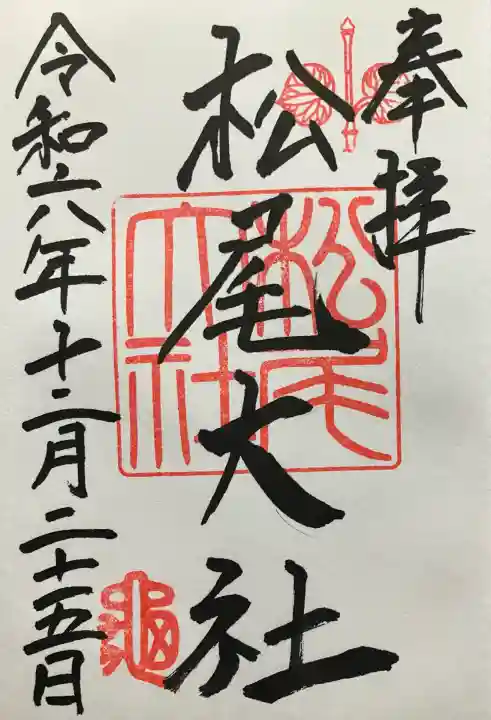 奉拝
松尾大社
松尾大社
令和六年十二月二十五日
龜